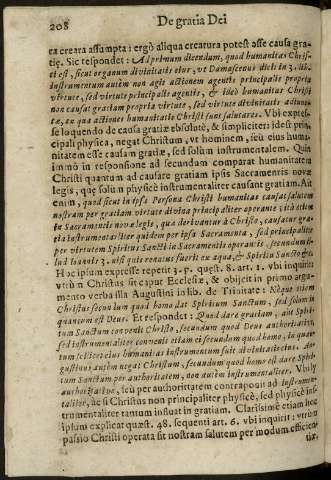 208
De gratia Dei
ea creara assumpta: ergò aliqua creatura potest esse causa gra-
tię. Sic respondet: Ad primum dicendum, quod humanitas Chris-
ti est, sicut organum divinitatis eius, vt Damascenus dicit in 3. lib.
instrumentum autem non agit actionem agentis principalis propria
virtute, sed virtute principalis agentis, & ideò humanitas Christi
non causat gratiam propria virtute, sed virtute divinitatis adiunc-
tæ, ex qua actiones humanitatis Christi sunt salutares. Vbi expres-
se loquendo de causa gratiæ absolutè, & simpliciter: idest prin-
cipali physica, negat Christum, vt hominem, seu eius huma-
nitatem esse causam gratiæ, sed solum instrumentalem. Quin
immò in responsione ad secundum comparat humanitatem
Christi quantum ad causare gratiam ipsis Sacramentis novæ
legis, quę solum physicè instrumentaliter causant gratiam. Ait
enim, quod sicut in ipsa Persona Christi humanitas causat salutem
nostram per gratiam virtute divina principaliter operante; ità etiam
in Sacramentis novæ legis, quæ derivantur à Christo, causatur gra-
tia instrumentaliter quidem per ipsa Sacramenta, sed principaliter
per virtutem Spiritus Sancti in Sacramentis operantis, secundum il-
lud Ioannis 3. nisi quis renatus fuerit ex aqua, & Spiritu Sancto &c.
Hoc ipsum expresse repetit 3. p. quęst. 8. art. 1. vbi inquirit
vtrùm Christus sit caput Ecclesiæ, & objicit in primo argu-
mento verba illa Augustini in lib. de Trinitate: Neque etiam
Christus secundum quod homo dat Spiritum Sanctum, sed solum in
quantum est Deus. Et respondet: Quod dare gratiam, aut Spiri-
tum Sanctum convenit Christo, secundum quod Deus authoritativè,
sed instrumentaliter convenit etiam ei secundum quod homo, in quan-
tum scilicet eius humanitas instrumentum fuit divinitatis eius. Au-
gustinus autem negat Christum, secundum quod homo est dare Spiri-
tum Sanctum per authoritatem, non autem instrumentaliter. Vbi ly
authoritativè, seu per authoritatem contraponit ad instrumen-
taliter, ac si Christus non principaliter physicè, sed physicè ins-
trumentaliter tantum influat in gratiam. Clarissimè etiam hoc
ipsum explicat quæst. 48. sequenti art. 6. vbi inquirit: vtrùm
passio Christi operata sit nostram salutem per modum efficien-
tiæ.